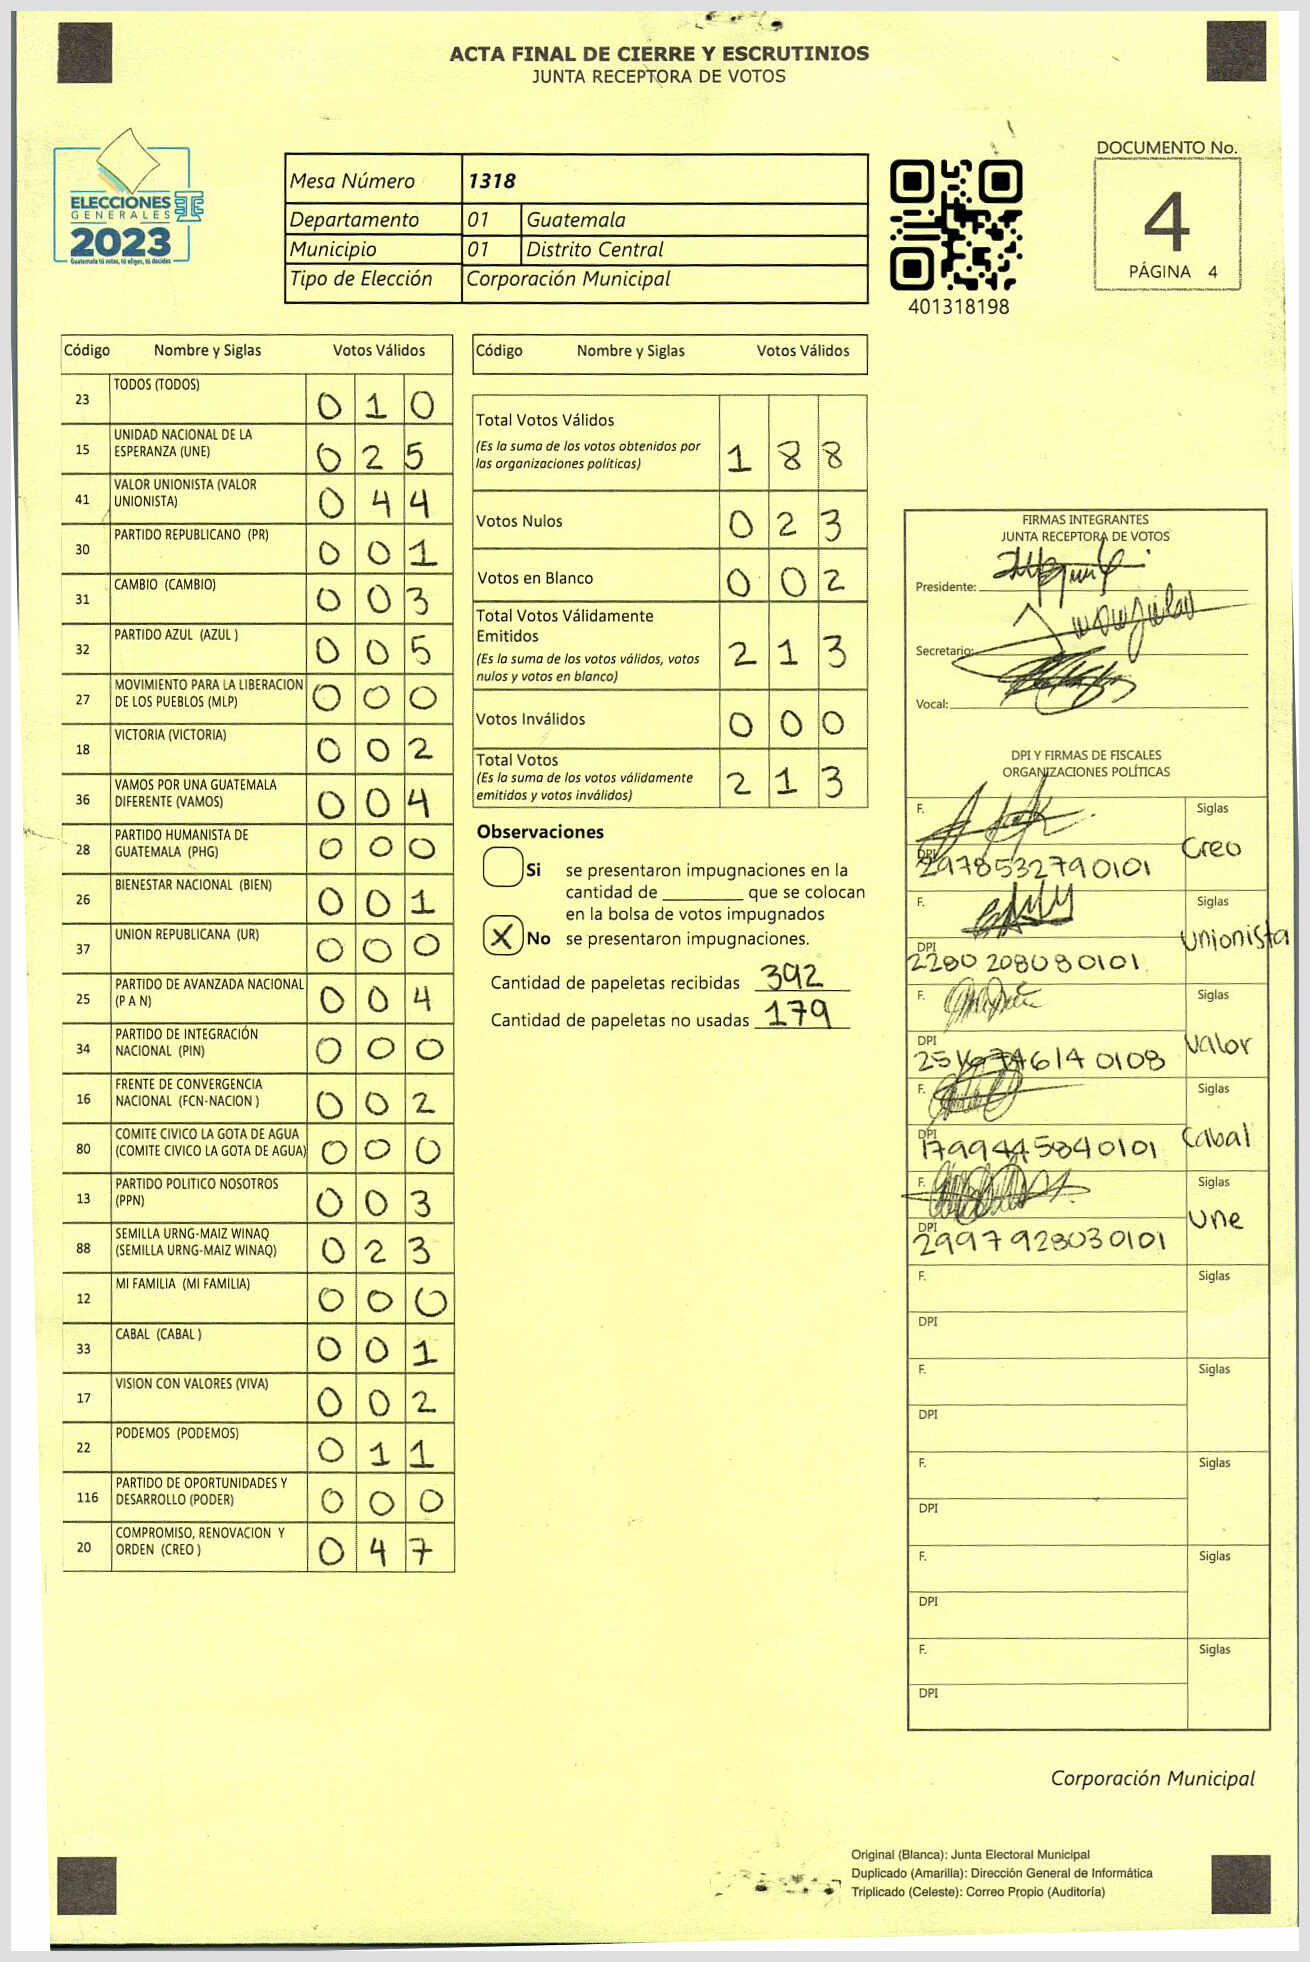 ACTA FINAL DE CIERRE Y ESCRUTINIOS
JUNTA RECEPTORA DE VOTOS
ELECCIONES
GENERALES
2023
Guatemala tú votas, tú eliges, tú decides
Mesa Número 1318
Departamento 01 Guatemala
Municipio 01 Distrito Central
Tipo de Elección Corporación Municipal
401318198
DOCUMENTO No.
4
PÁGINA 4
Código Nombre y Siglas Votos Válidos
23 TODOS (TODOS) 0 1 0
15 UNIDAD NACIONAL DE LA
ESPERANZA (UNE) 0 2 5
41 VALOR UNIONISTA (VALOR
UNIONISTA) 0 4 4
30 PARTIDO REPUBLICANO (PR) 0 0 1
31 CAMBIO (CAMBIO) 0 0 3
32 PARTIDO AZUL (AZUL ) 0 0 5
27 MOVIMIENTO PARA LA LIBERACION
DE LOS PUEBLOS (MLP) 0 0 0
18 VICTORIA (VICTORIA) 0 0 2
36 VAMOS POR UNA GUATEMALA
DIFERENTE (VAMOS) 0 0 4
28 PARTIDO HUMANISTA DE
GUATEMALA (PHG) 0 0 0
26 BIENESTAR NACIONAL (BIEN) 0 0 1
37 UNION REPUBLICANA (UR) 0 0 0
25 PARTIDO DE AVANZADA NACIONAL
(P A N) 0 0 4
34 PARTIDO DE INTEGRACIÓN
NACIONAL (PIN) 0 0 0
16 FRENTE DE CONVERGENCIA
NACIONAL (FCN-NACION ) 0 0 2
80 COMITE CIVICO LA GOTA DE AGUA
(COMITE CIVICO LA GOTA DE AGUA) 0 0 0
13 PARTIDO POLITICO NOSOTROS
(PPN) 0 0 3
88 SEMILLA URNG-MAIZ WINAQ
(SEMILLA URNG-MAIZ WINAQ) 0 2 3
12 MI FAMILIA (MI FAMILIA) 0 0 0
33 CABAL (CABAL ) 0 0 1
17 VISION CON VALORES (VIVA) 0 0 2
22 PODEMOS (PODEMOS) 0 1 1
116 PARTIDO DE OPORTUNIDADES Y
DESARROLLO (PODER) 0 0 0
20 COMPROMISO, RENOVACION Y
ORDEN (CREO ) 0 4 7
Código Nombre y Siglas Votos Válidos
Total Votos Válidos
(Es la suma de los votos obtenidos por
las organizaciones políticas) 1 8 8
Votos Nulos 0 2 3
Votos en Blanco 0 0 2
Total Votos Válidamente
Emitidos
(Es la suma de los votos válidos, votos
nulos y votos en blanco) 2 1 3
Votos Inválidos 0 0 0
Total Votos
(Es la suma de los votos válidamente
emitidos y votos inválidos) 2 1 3
Observaciones
Si se presentaron impugnaciones en la
cantidad de que se colocan
en la bolsa de votos impugnados
X No se presentaron impugnaciones.
Cantidad de papeletas recibidas 392
Cantidad de papeletas no usadas 179
FIRMAS INTEGRANTES
JUNTA RECEPTORA DE VOTOS
Presidente:
Secretario:
Vocal:
DPI Y FIRMAS DE FISCALES
ORGANIZACIONES POLÍTICAS
F. Siglas
Creo
DPI
2978532790101
F. Siglas
Unionista
DPI
2280 208080101
F. Siglas
Valor
DPI
F. Siglas
Cabal
DPI
1799445840101
F. Siglas
Une
DPI
2997928030101
F. Siglas
DPI
F. Siglas
DPI
F. Siglas
DPI
F. Siglas
DPI
F. Siglas
DPI
Corporación Municipal
Original (Blanca): Junta Electoral Municipal
Duplicado (Amarilla): Dirección General de Informática
Triplicado (Celeste): Correo Propio (Auditoría)